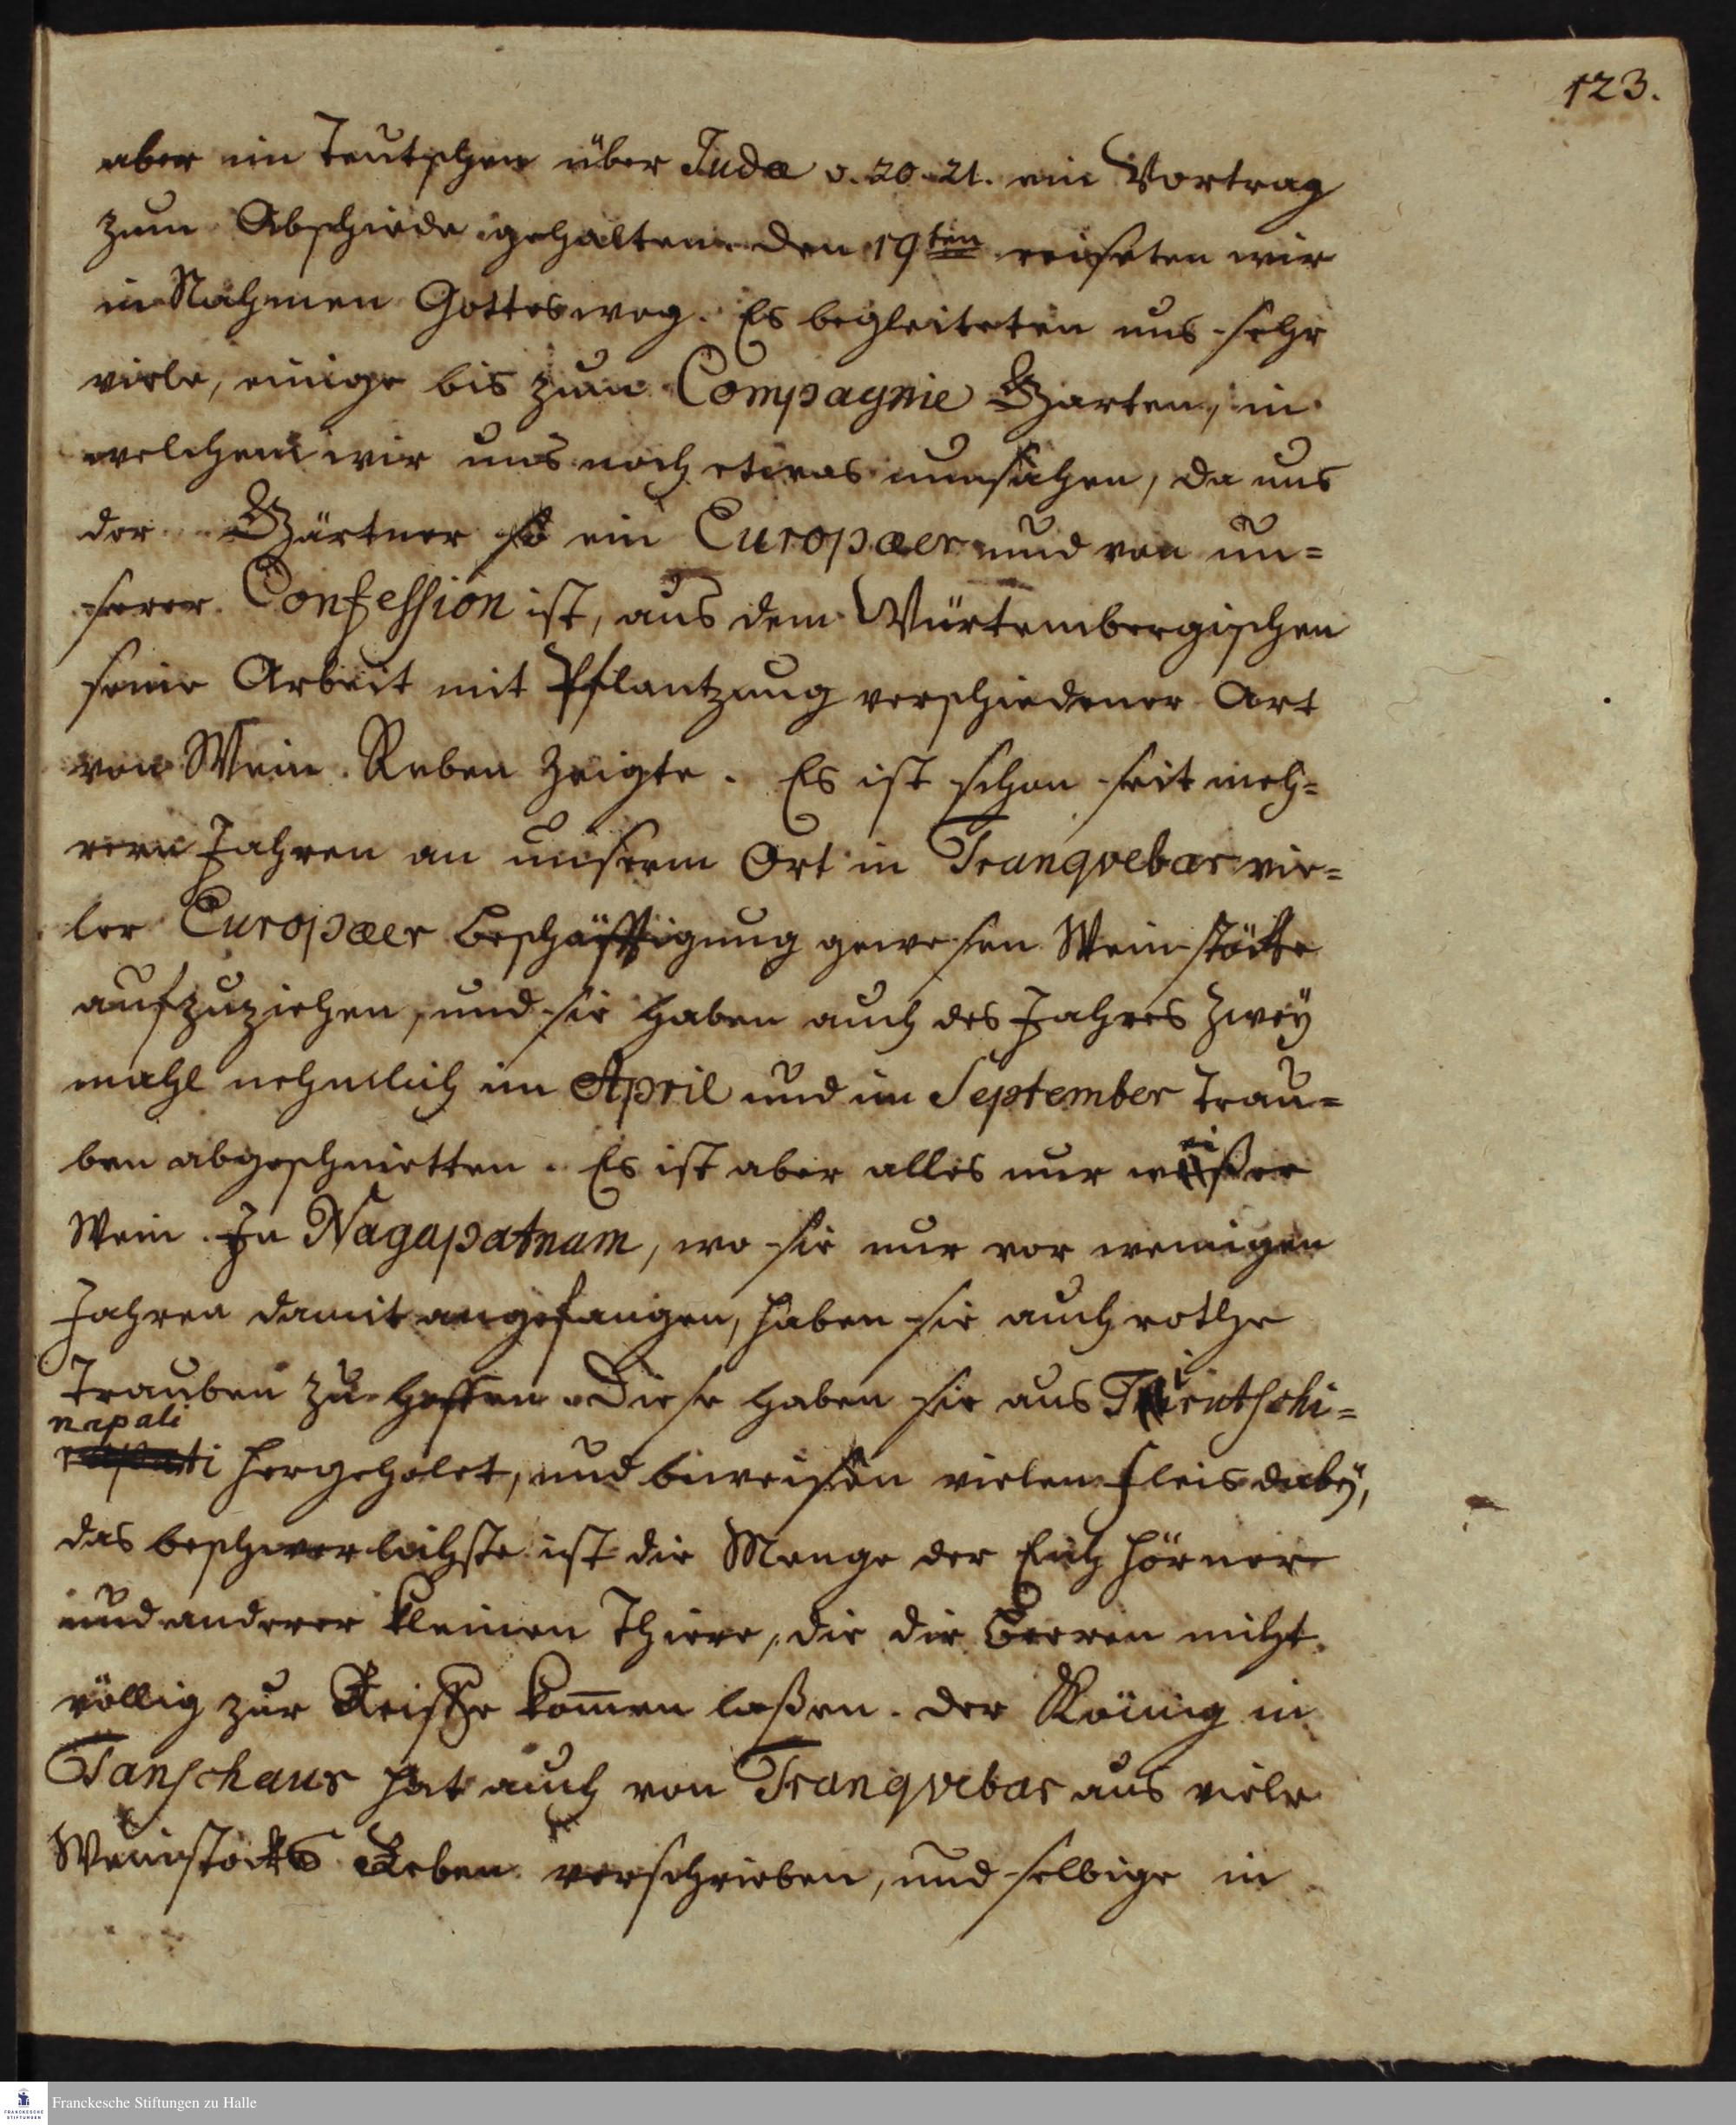 123.
aber im Teutschen über Judæ v. 20-21. ein Vortrag
zum Abschiede gehalten. den 19ten reiseten wir
in Nahmen Gottes weg. Es begleiteten uns sehr
viele, einige bis zum Compagnie Garten, in
welchem wir uns noch etwas umsahen, da uns
der Gärtner so ein Europæer und von un=
serer Confession ist, aus dem Würtembergischen
seine Arbeit mit Pflantzung verschiedener Art
von Wein Reben zeigte. Es ist schon seit meh=
rern Jahren an unserm Ort in Tranqvebar vie=
ler Europæer Beschäfftigung gewesen Weinstöcke
aufzuziehen, und sie haben auch des Jahres zwey
mahl nehmlich im April und im September Trau=
ben abgeschnietten. Es ist aber alles nur weißer
Wein. In Nagapatnam, wo sie nur vor wenigen
Jahren damit angefangen, haben sie auch rothe
Trauben zu hoffen. Diese haben sie aus Tirutschi=
napali
hergeholet, und beweisen vielen Fleis dabey,
das beschwerlichste ist die Menge der Eich hörner
und anderer kleinen Thiere, die die Beeren nicht
völlig zur Reiffe kom̅en laßen. Der König in
Tanschaur hat auch von Tranqvebar aus viele
Weinstocks Reben verschrieben, und selbige in
Franckesche Stiftungen zu Halle
FRANCKESCHE
STIFTUNGEN